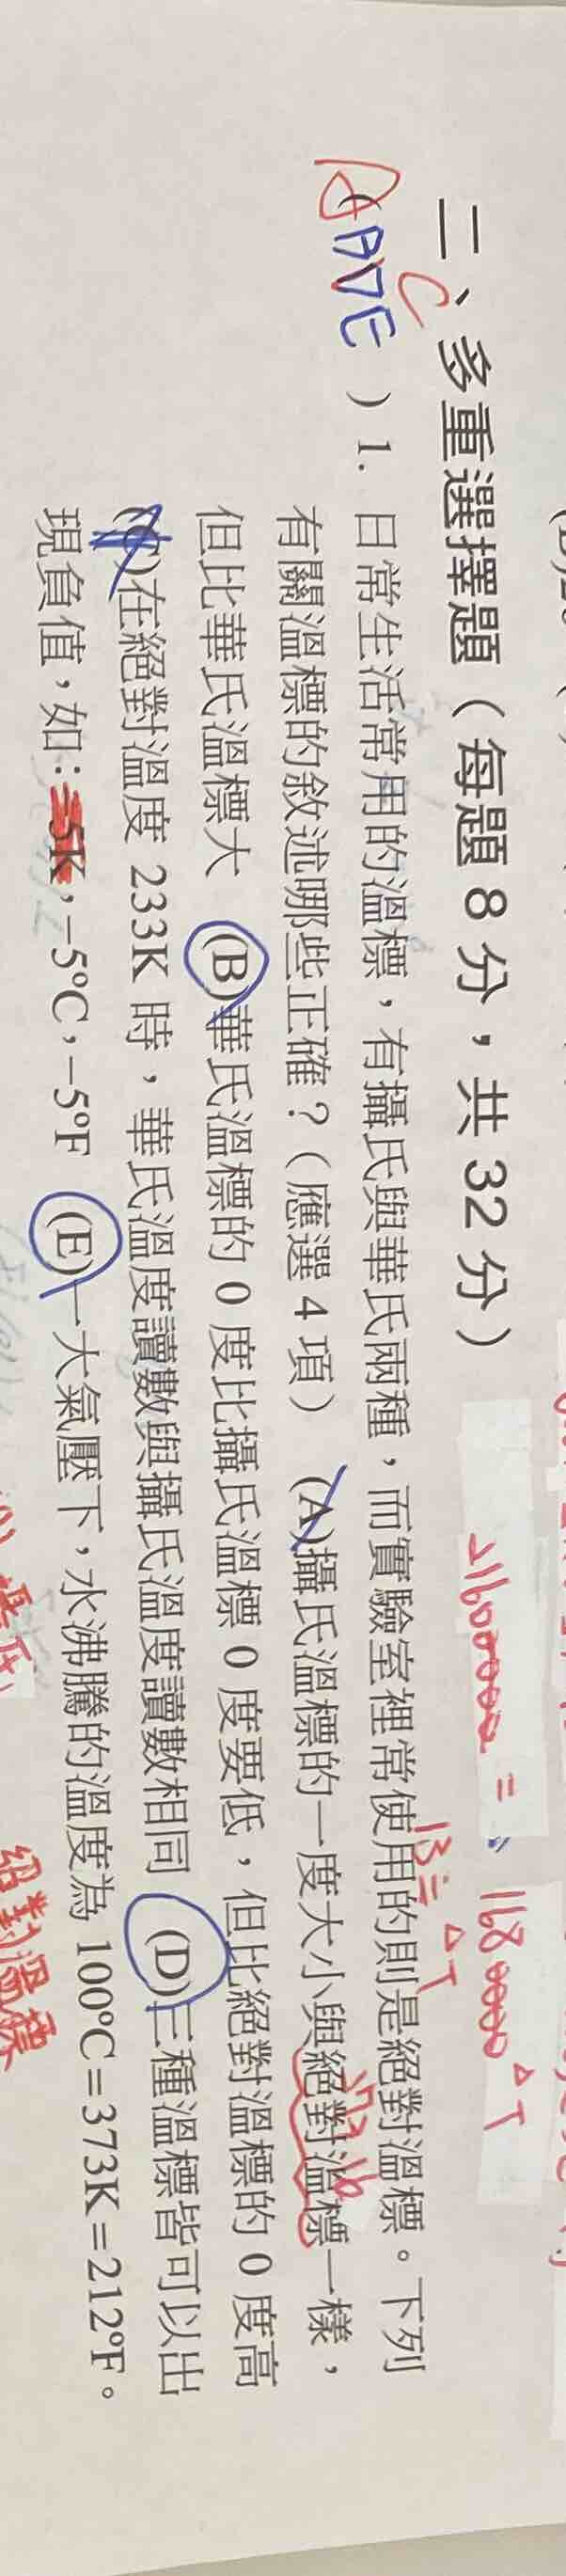 二、多重選擇題（每題 8 分，共 32 分）
2160000 = 1680000 △T
13 = △T
C
ABDE
( ) 1. 日常生活常用的溫標，有攝氏與華氏兩種，而實驗室裡常使用的則是絕對溫標。下列
有關溫標的敘述哪些正確？（應選 4 項） (A)攝氏溫標的一度大小與絕對溫標一樣，
但比華氏溫標大 (B)華氏溫標的 0 度比攝氏溫標 0 度要低，但比絕對溫標的 0 度高
(C)在絕對溫度 233K 時，華氏溫度讀數與攝氏溫度讀數相同 (D)三種溫標皆可以出
現負值，如：–5K，–5°C，–5°F (E)一大氣壓下，水沸騰的溫度為 100°C＝373K＝212°F。
絕對溫標